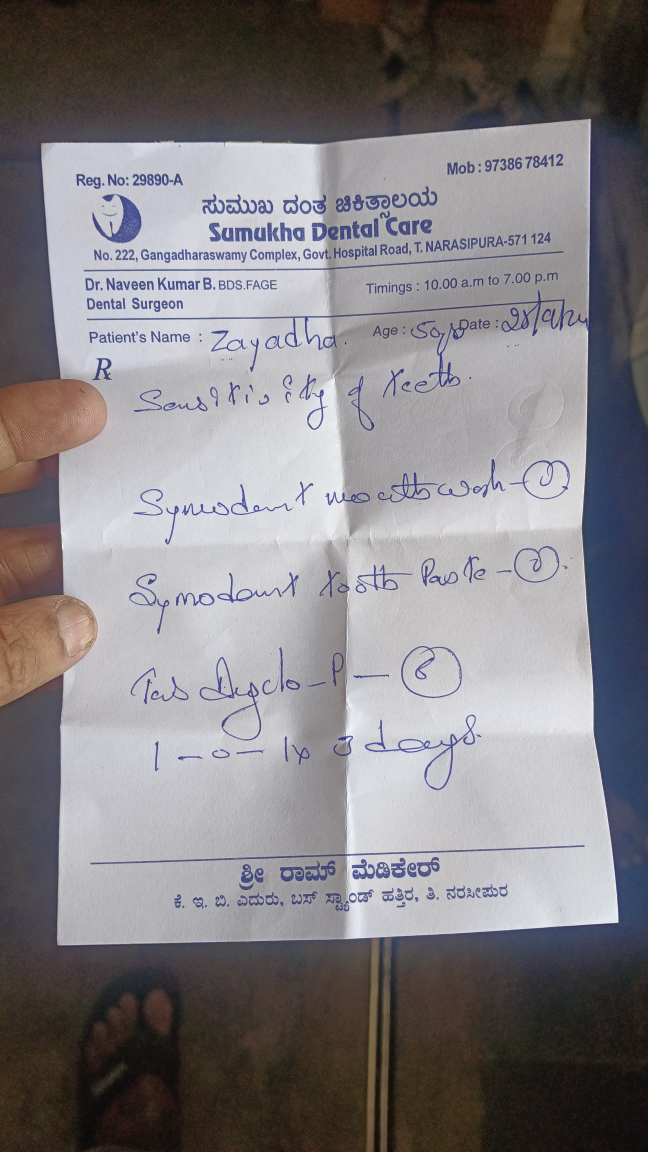 Reg. No: 29890-A
Mob : 97386 78412
ಸುಮುಖ ದಂತ ಚಿಕಿತ್ಸಾಲಯ
Sumukha Dental Care
No. 222, Gangadharaswamy Complex, Govt. Hospital Road, T. NARASIPURA-571 124
Dr. Naveen Kumar B. BDS.FAGE
Timings : 10.00 a.m to 7.00 p.m
Dental Surgeon
Patient's Name : Zayadha. Age : Date :
Rx
Sensitivity of teeth.
Symodent mouth wash - 1
Symodent tooth Paste -
Tab - P -
1 - 0 - 1 x 3 days.
ಶ್ರೀ ರಾಮ್ ಮೆಡಿಕೇರ್
ಕೆ. ಇ. ಬಿ. ಎದುರು, ಬಸ್ ಸ್ಟ್ಯಾಂಡ್ ಹತ್ತಿರ, ತಿ. ನರಸೀಪುರ